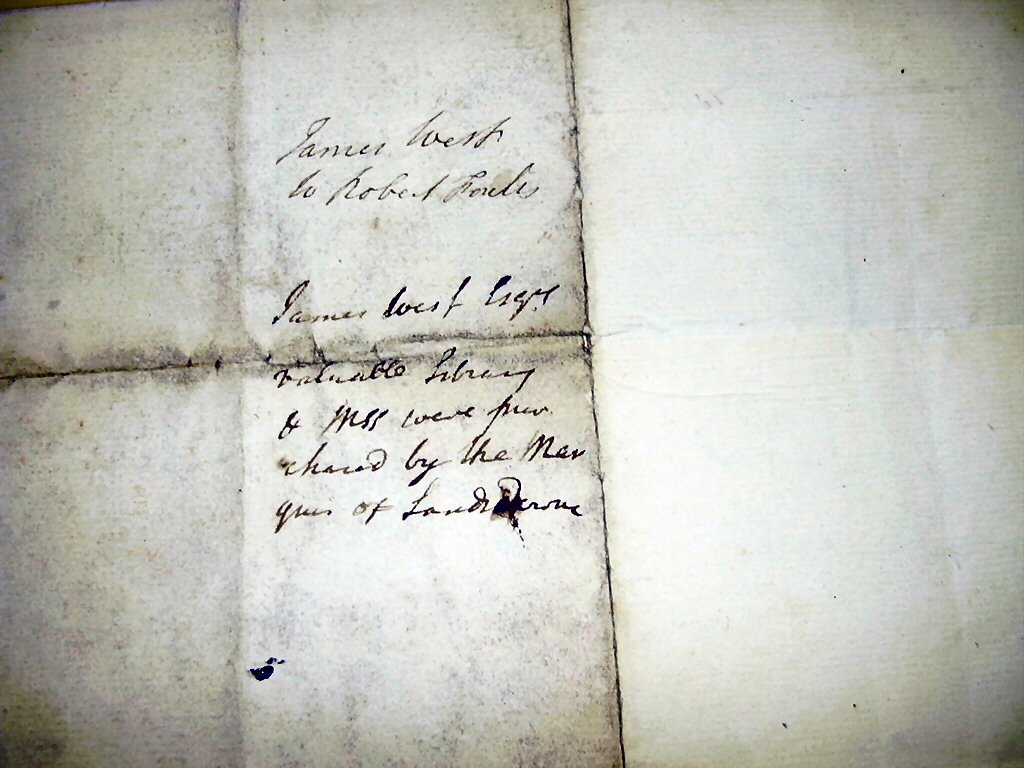 James West
to Robert Foulis
James West Esqr
valuable Library
& MSS were pur
chased by the Mar
quis of